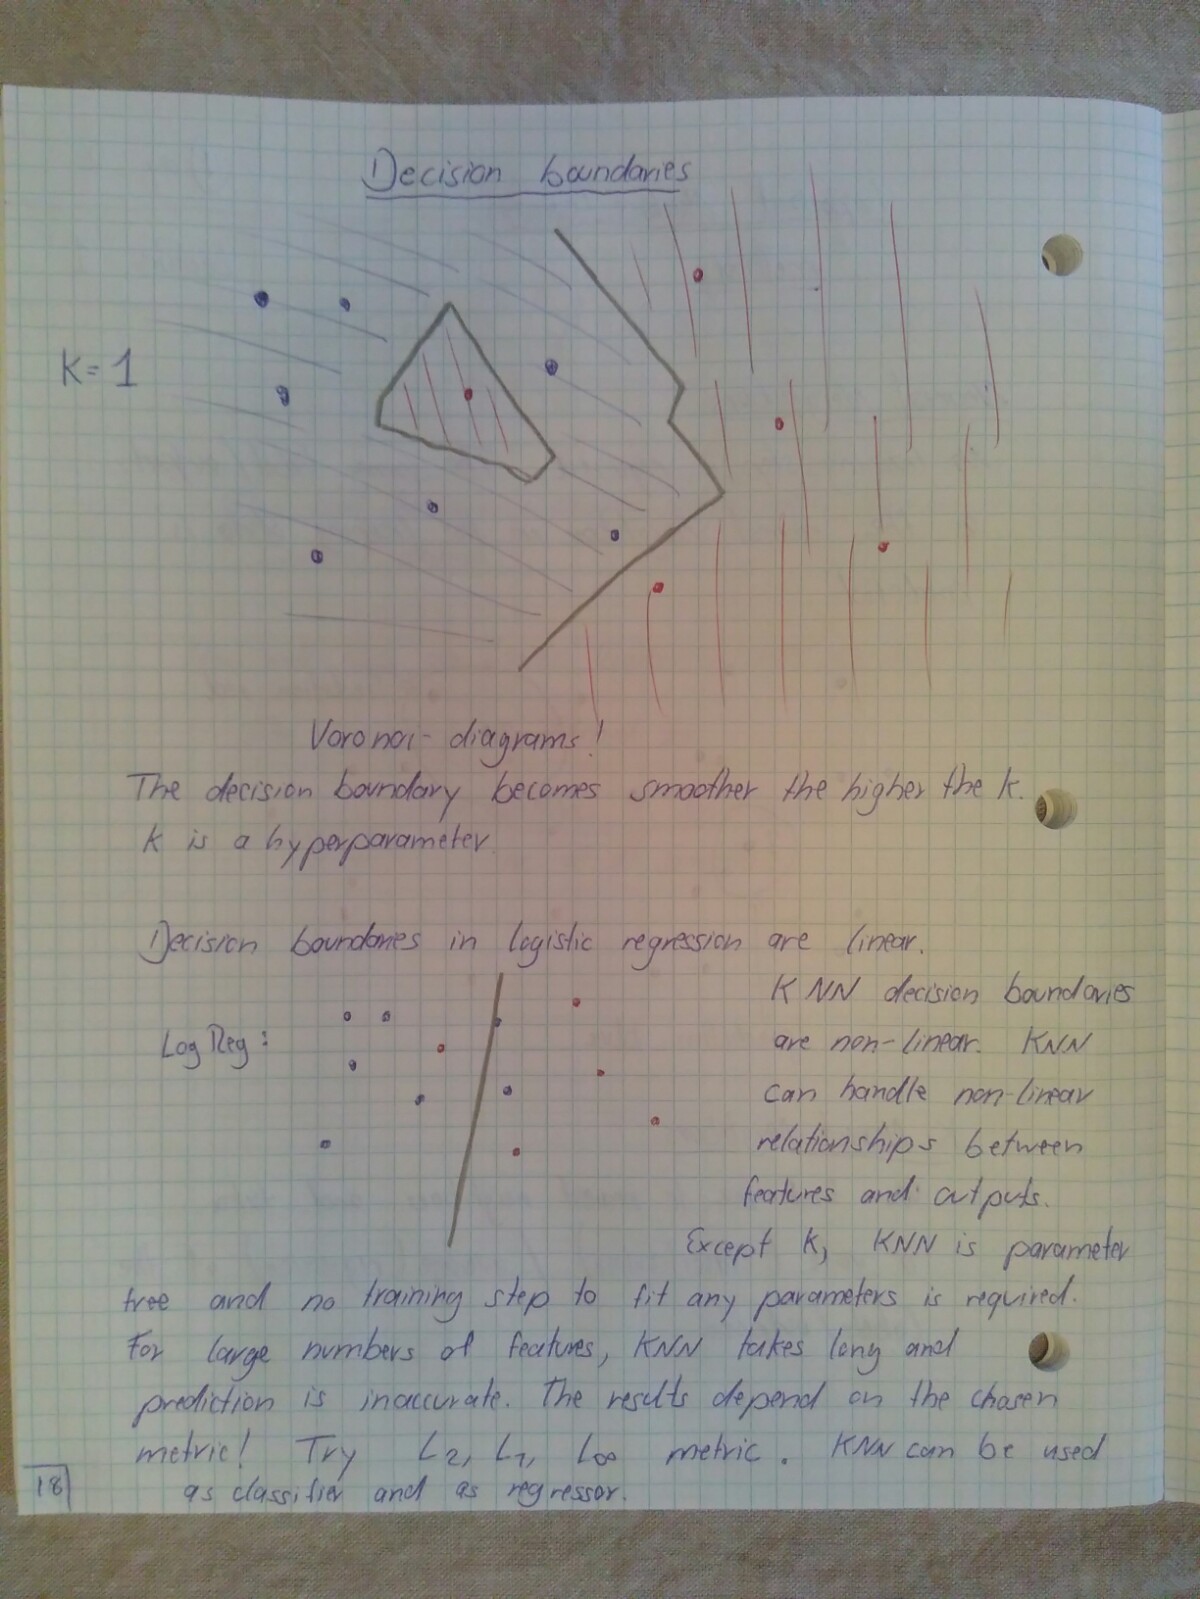 Decision boundaries
K=1
Voronoi-diagrams!
The decision boundary becomes smoother the higher the k.
K is a hyperparameter
Decision boundaries in logistic regression are linear.
Log Reg:
KNN decision boundaries
are non-linear. KNN
can handle non-linear
relationships between
features and outputs.
Except K, KNN is parameter
free and no training step to fit any parameters is required.
For large numbers of features, KNN takes long and
prediction is inaccurate. The results depend on the chosen
metric! Try L2, L1, L∞ metric. KNN can be used
as classifier and as regressor.
18